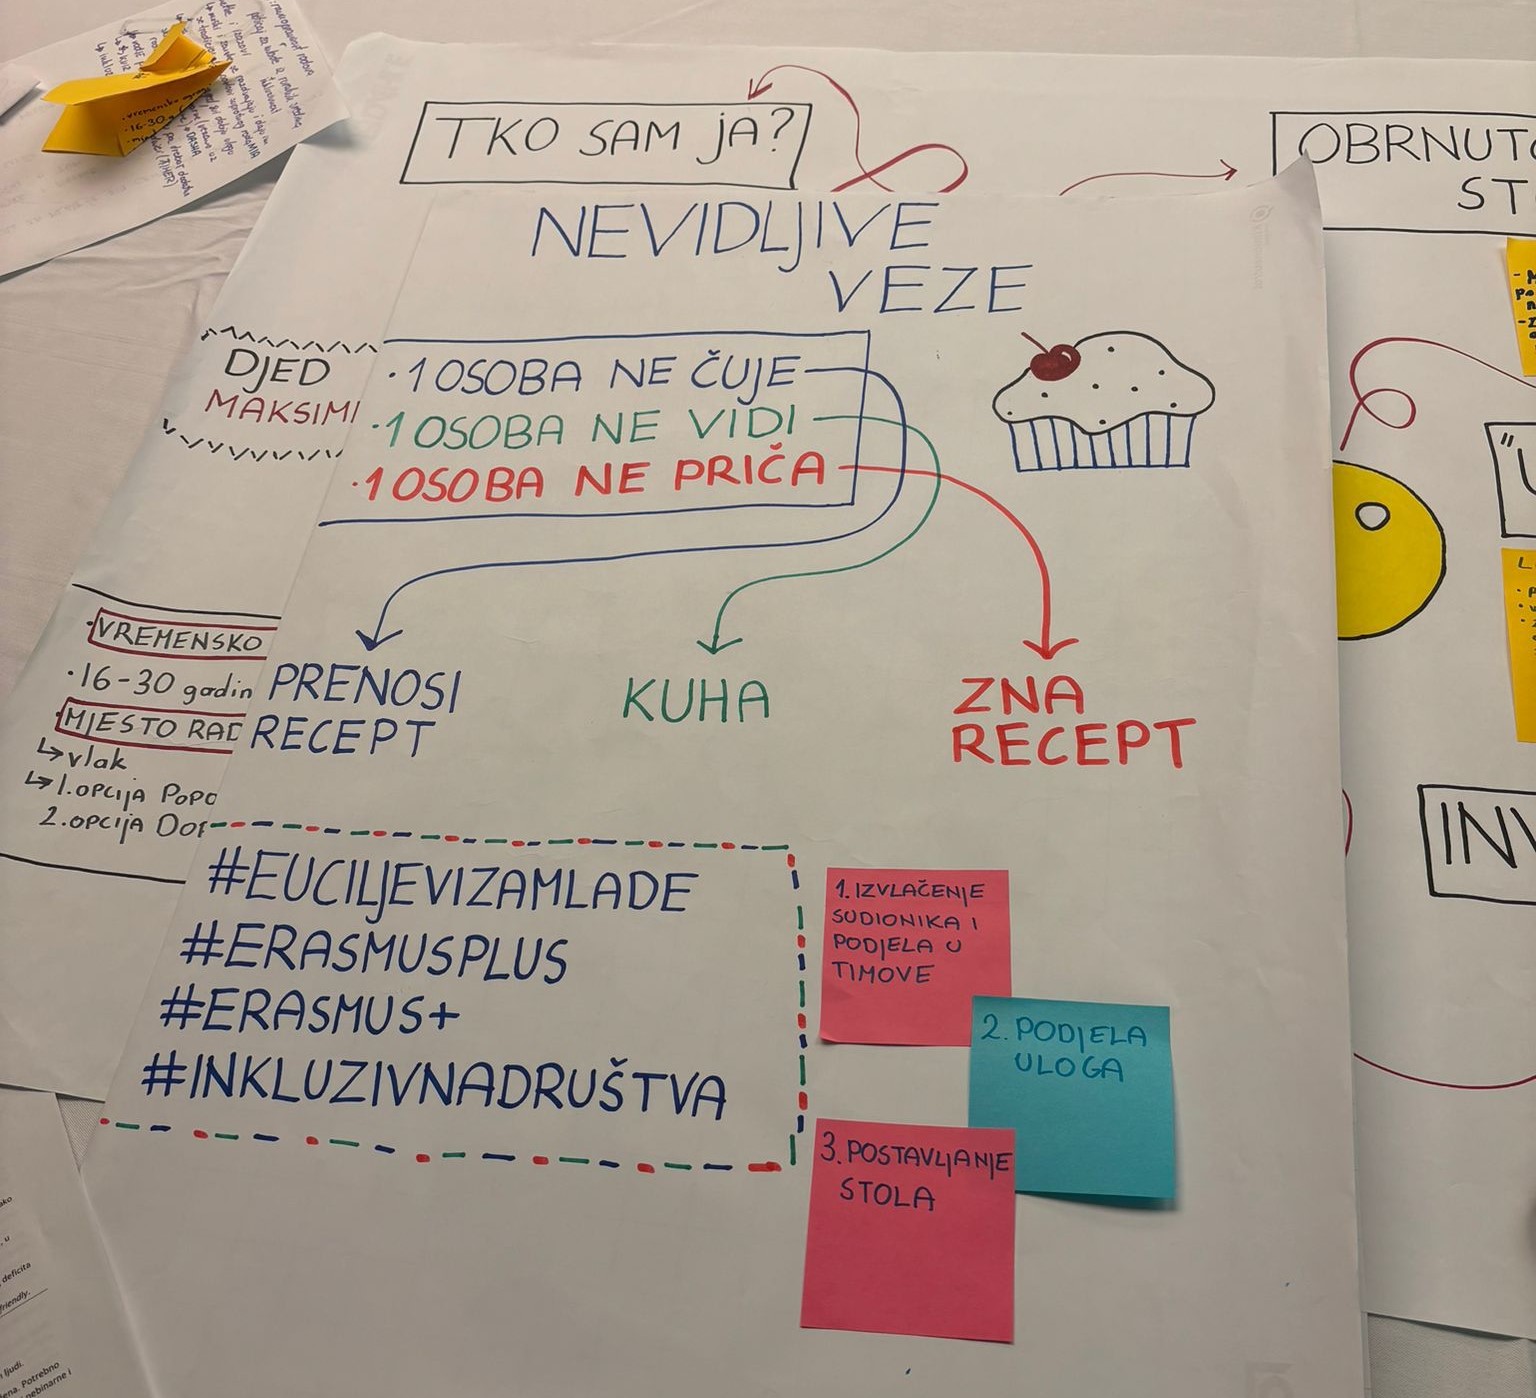 TKO SAM JA?
OBRNUTO
ST
NEVIDLJIVE
VEZE
DJED
MAKSIMI
· 1 OSOBA NE ČUJE
· 1 OSOBA NE VIDI
· 1 OSOBA NE PRIČA
PRENOSI
RECEPT
KUHA
ZNA
RECEPT
· VREMENSKO
· 16-30 godin
· MJESTO RAD
↳ vlak
↳ 1. opcija Popo
2. opcija Dor
INV
#EUCILJEVIZAMLADE
#ERASMUSPLUS
#ERASMUS+
#INKLUZIVNADRUŠTVA
1. IZVLAČENJE
SUDIONIKA I
PODJELA U
TIMOVE
2. PODJELA
ULOGA
3. POSTAVLJANJE
STOLA
deficita
friendly.
ljudi.
Potrebno
nebinarne i